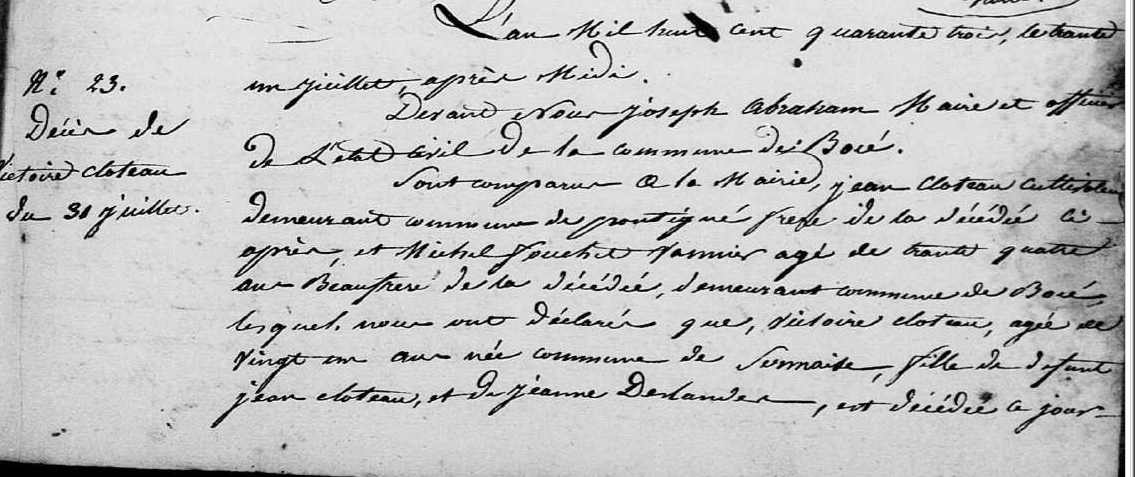 L'an Mil huit cent quarante trois, le trante
un juillet, après Midi.
Nº 23.
Décès de
Victoire cloteau
du 31 juillet.
Devant Nous joseph Abraham Maire et officier
de L'etat Civil de la commune de Bocé.
Sont comparus a la Mairie, jean cloteau cultivateur
demeurant commune de pontigné frere de la décédée ci-
après, et Michel fouchet vannier agé de trante quatre
ans Beaufrere de la décédée, demeurant commune de Bocé,
lesquels nous ont déclarés que, victoire cloteau, agée de
vingt un ans née commune de Sermaise, fille de defunt
jean cloteau, et de jéanne Deslandes, est décédée ce jour